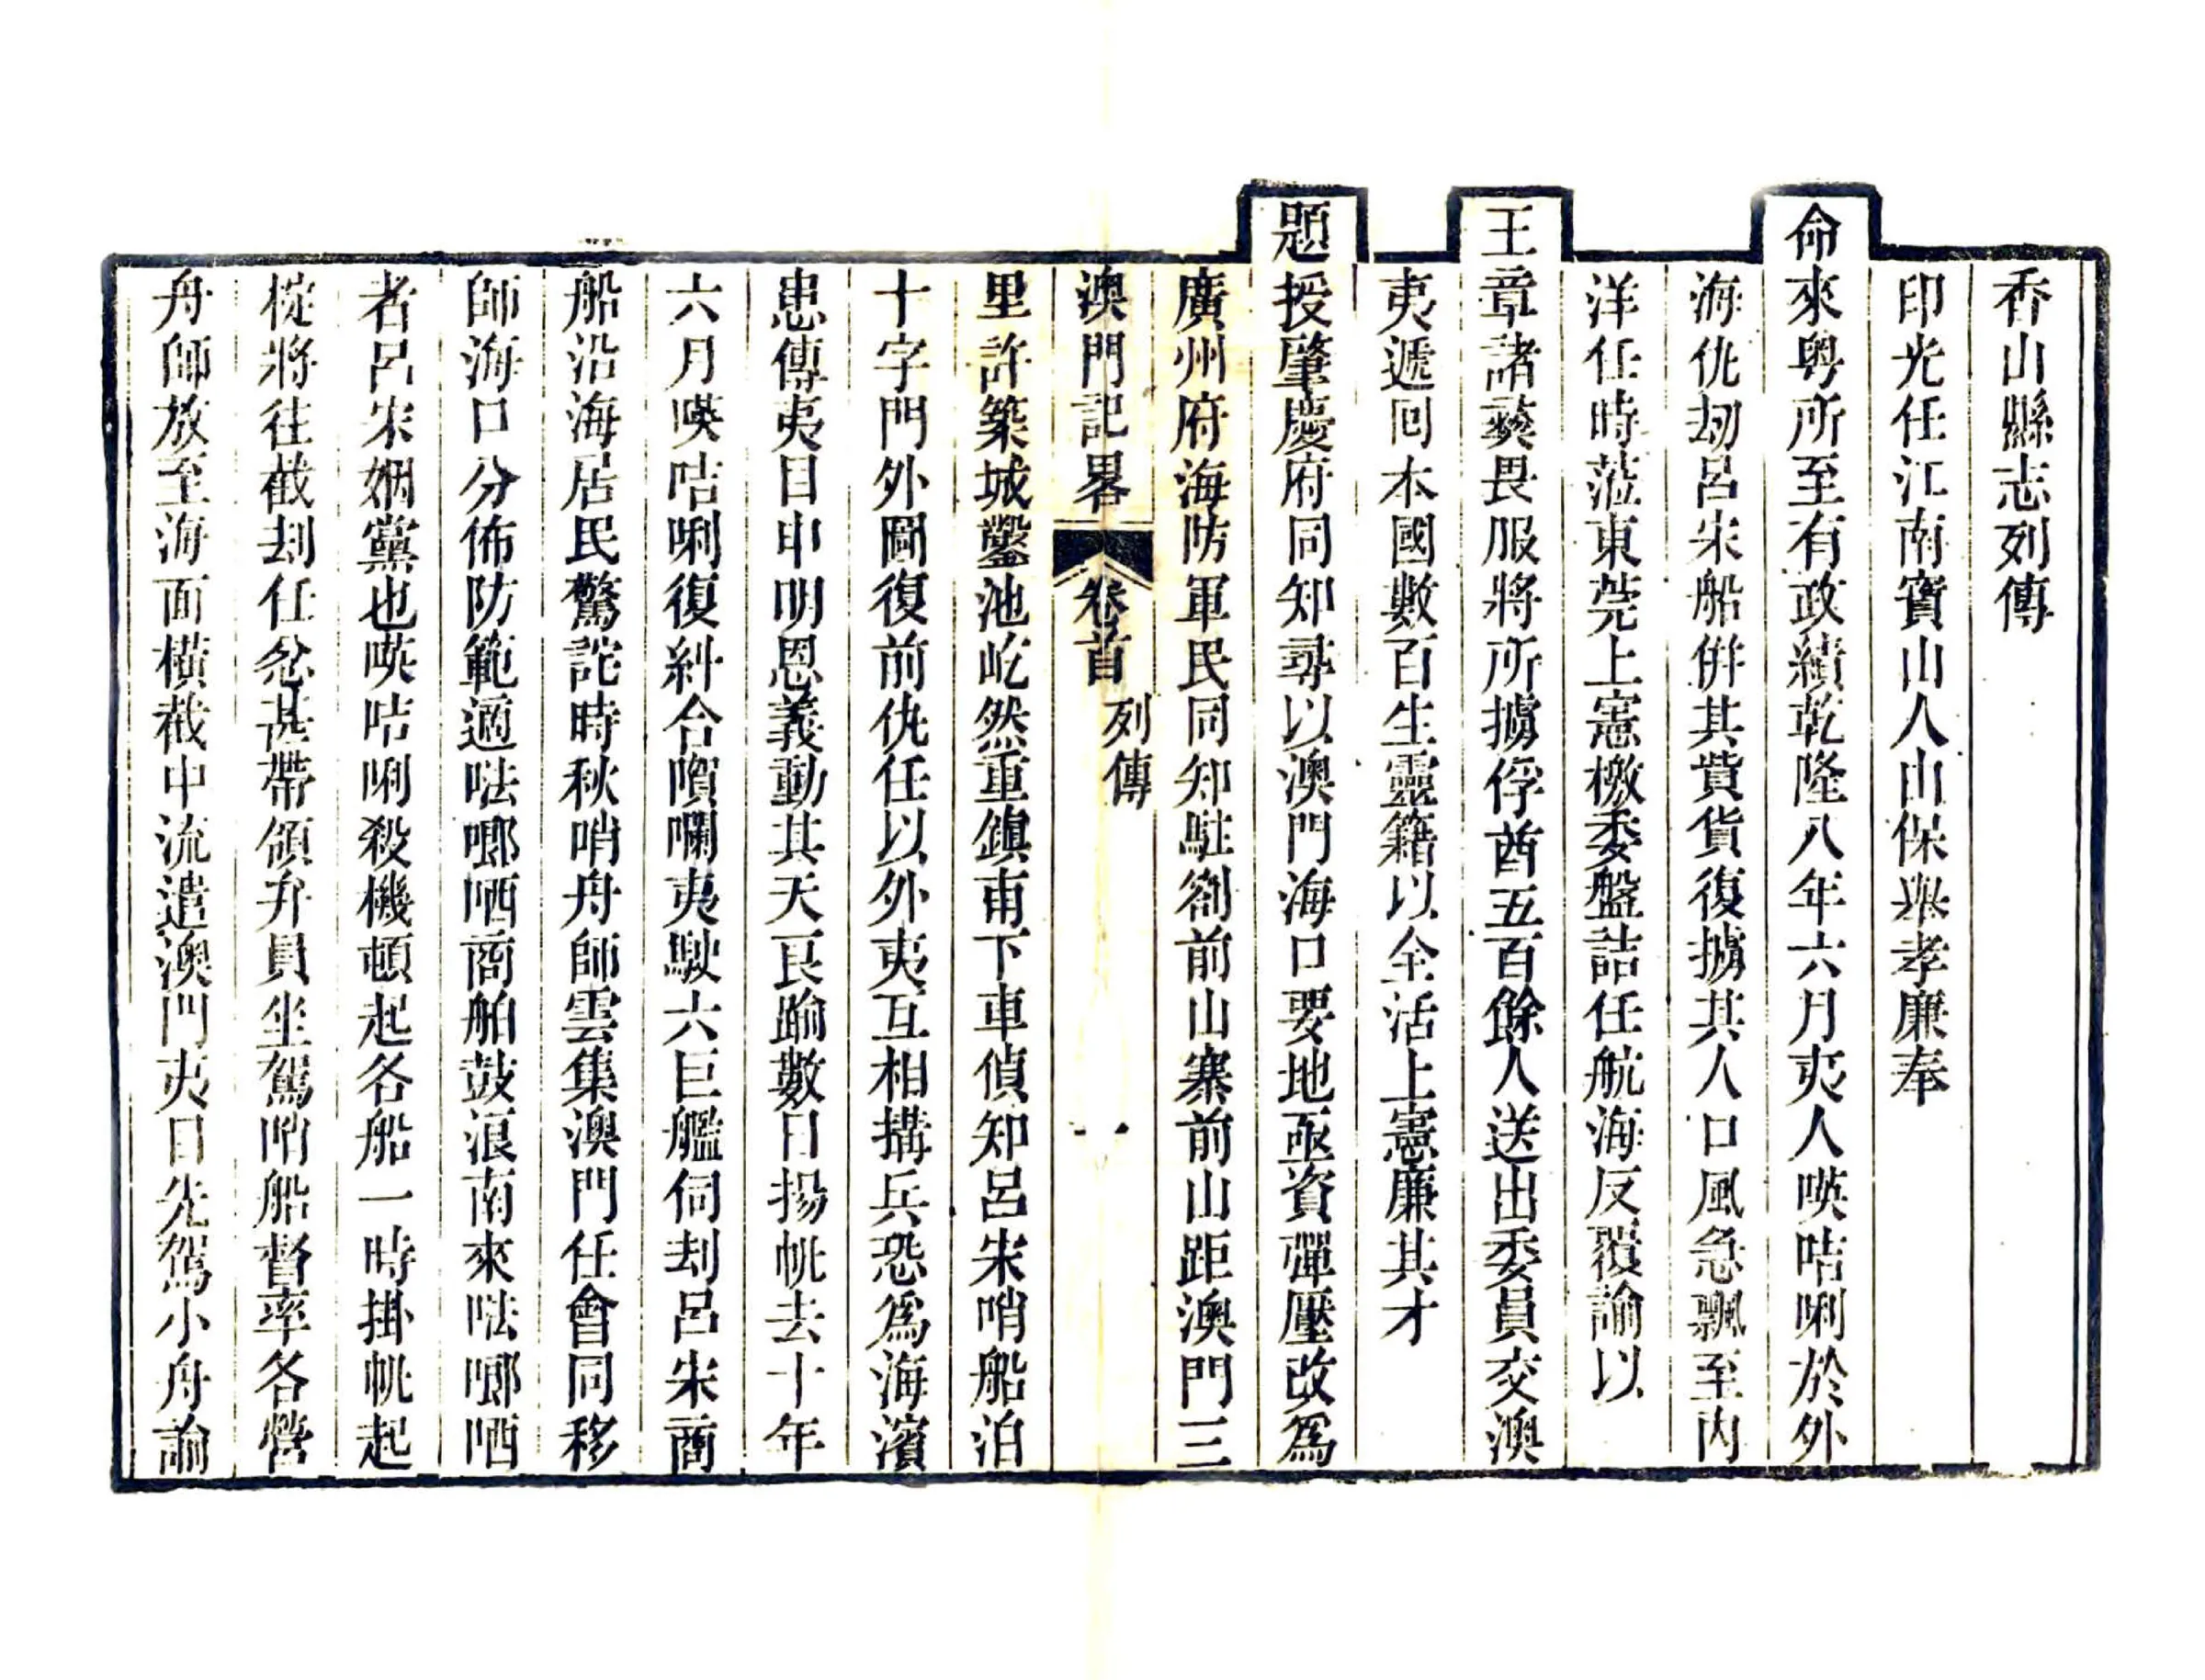 香山縣志列傳
印光任江南寶山人由保舉孝廉奉
命來粵所至有政績乾隆八年六月夷人㗲咭唎於外
海仇刼呂宋船併其貲貨復擄其人口風急飄至內
洋任時蒞東莞上憲檄委盤詰任航海反覆諭以
王章諸彝畏服將所擄俘酋五百餘人送出委員交澳
夷遞回本國數百生靈籍以全活上憲廉其才
題授肇慶府同知尋以澳門海口要地亟資彈壓改爲
廣州府海防軍民同知駐劄前山寨前山距澳門三
澳門記畧 卷首 列傳 一
里許築城鑿池屹然重鎮甫下車偵知呂宋哨船泊
十字門外圖復前仇任以外夷互相搆兵恐爲海濱
患傳夷目申明恩義動其天良踰數日揚帆去十年
六月㗲咭唎復糾合嗬囒夷駛六巨艦伺刦呂宋商
船沿海居民驚詫時秋哨舟師雲集澳門任會同移
師海口分佈防範適㕵啷哂商舶鼓浪南來㕵啷哂
者呂宋姻黨也㗲咭唎殺機頓起各船一時掛帆起
椗將往截刦任忿甚帶領弁員坐駕哨船督率各營
舟師放至海面橫截中流遣澳門夷目先駕小舟諭